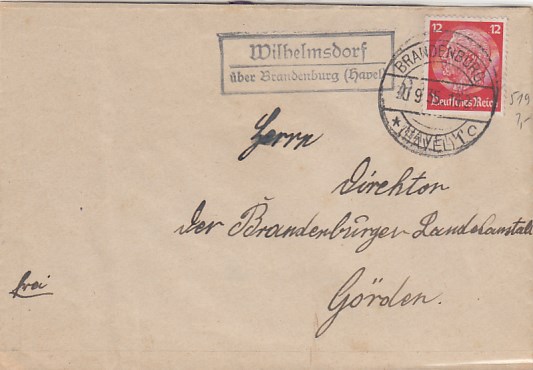 Wilhelmsdorf
über Brandenburg (Havel)
12 12
Deutsches Reich
BRANDENBURG
10 9
* (HAVEL) 1 c
519
7,-
Herrn
Direktor
der Brandenburger Landesanstalt
frei
Görden.